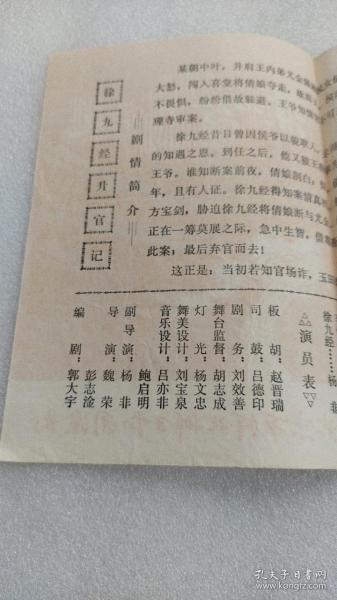 徐九经升官记
——剧情简介——
某朝中叶，并肩王内弟尤金
大怒，闯入喜堂将倩娘夺走，
不畏惧，纷纷借故躲避。王爷知
理寺审案。
徐九经昔日曾因侯爷以貌取人
的知遇之恩。到任之后，他又
王爷。谁知断案前夜，倩娘剖白，
年，且有人证。徐九经得知案情真
方宝剑，胁迫徐九经将倩娘断与尤金
正在一筹莫展之际，急中生智，借
此案；最后弃官而去！
这正是：当初若知官场诈，玉田
编剧：郭大宇
彭志淦
导演：魏荣
副导演：杨非
鲍启明
音乐设计：吕亦非
舞美设计：刘宝泉
灯光：杨文忠
舞台监督：胡志成
剧务：刘效善
司鼓：吕德印
板胡：赵晋瑞
△△演员表▽▽
徐九经……杨非
孔夫子旧书网